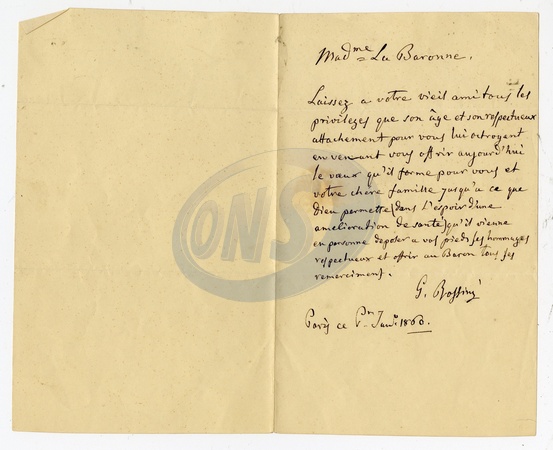 Mad^me La Baronne.
Laissez a votre vieil ami tous les
privileges que son âge et son respectueux
attachement pour vous lui octroyent
en venant vous offrir aujourd'hui
le vœux qu'il forme pour vous et
votre chere famille jusqu'a ce que
Dieu permette (dans l'espoir d'une
amelioration de santé) qu'il vienne
en personne deposer a vos pieds ses hommages
respectueux et offrir au Baron tous ses
remerciment.
G. Rossini
Paris ce P^r Janv. 1860.
ONS